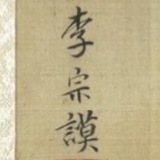 李宗謨